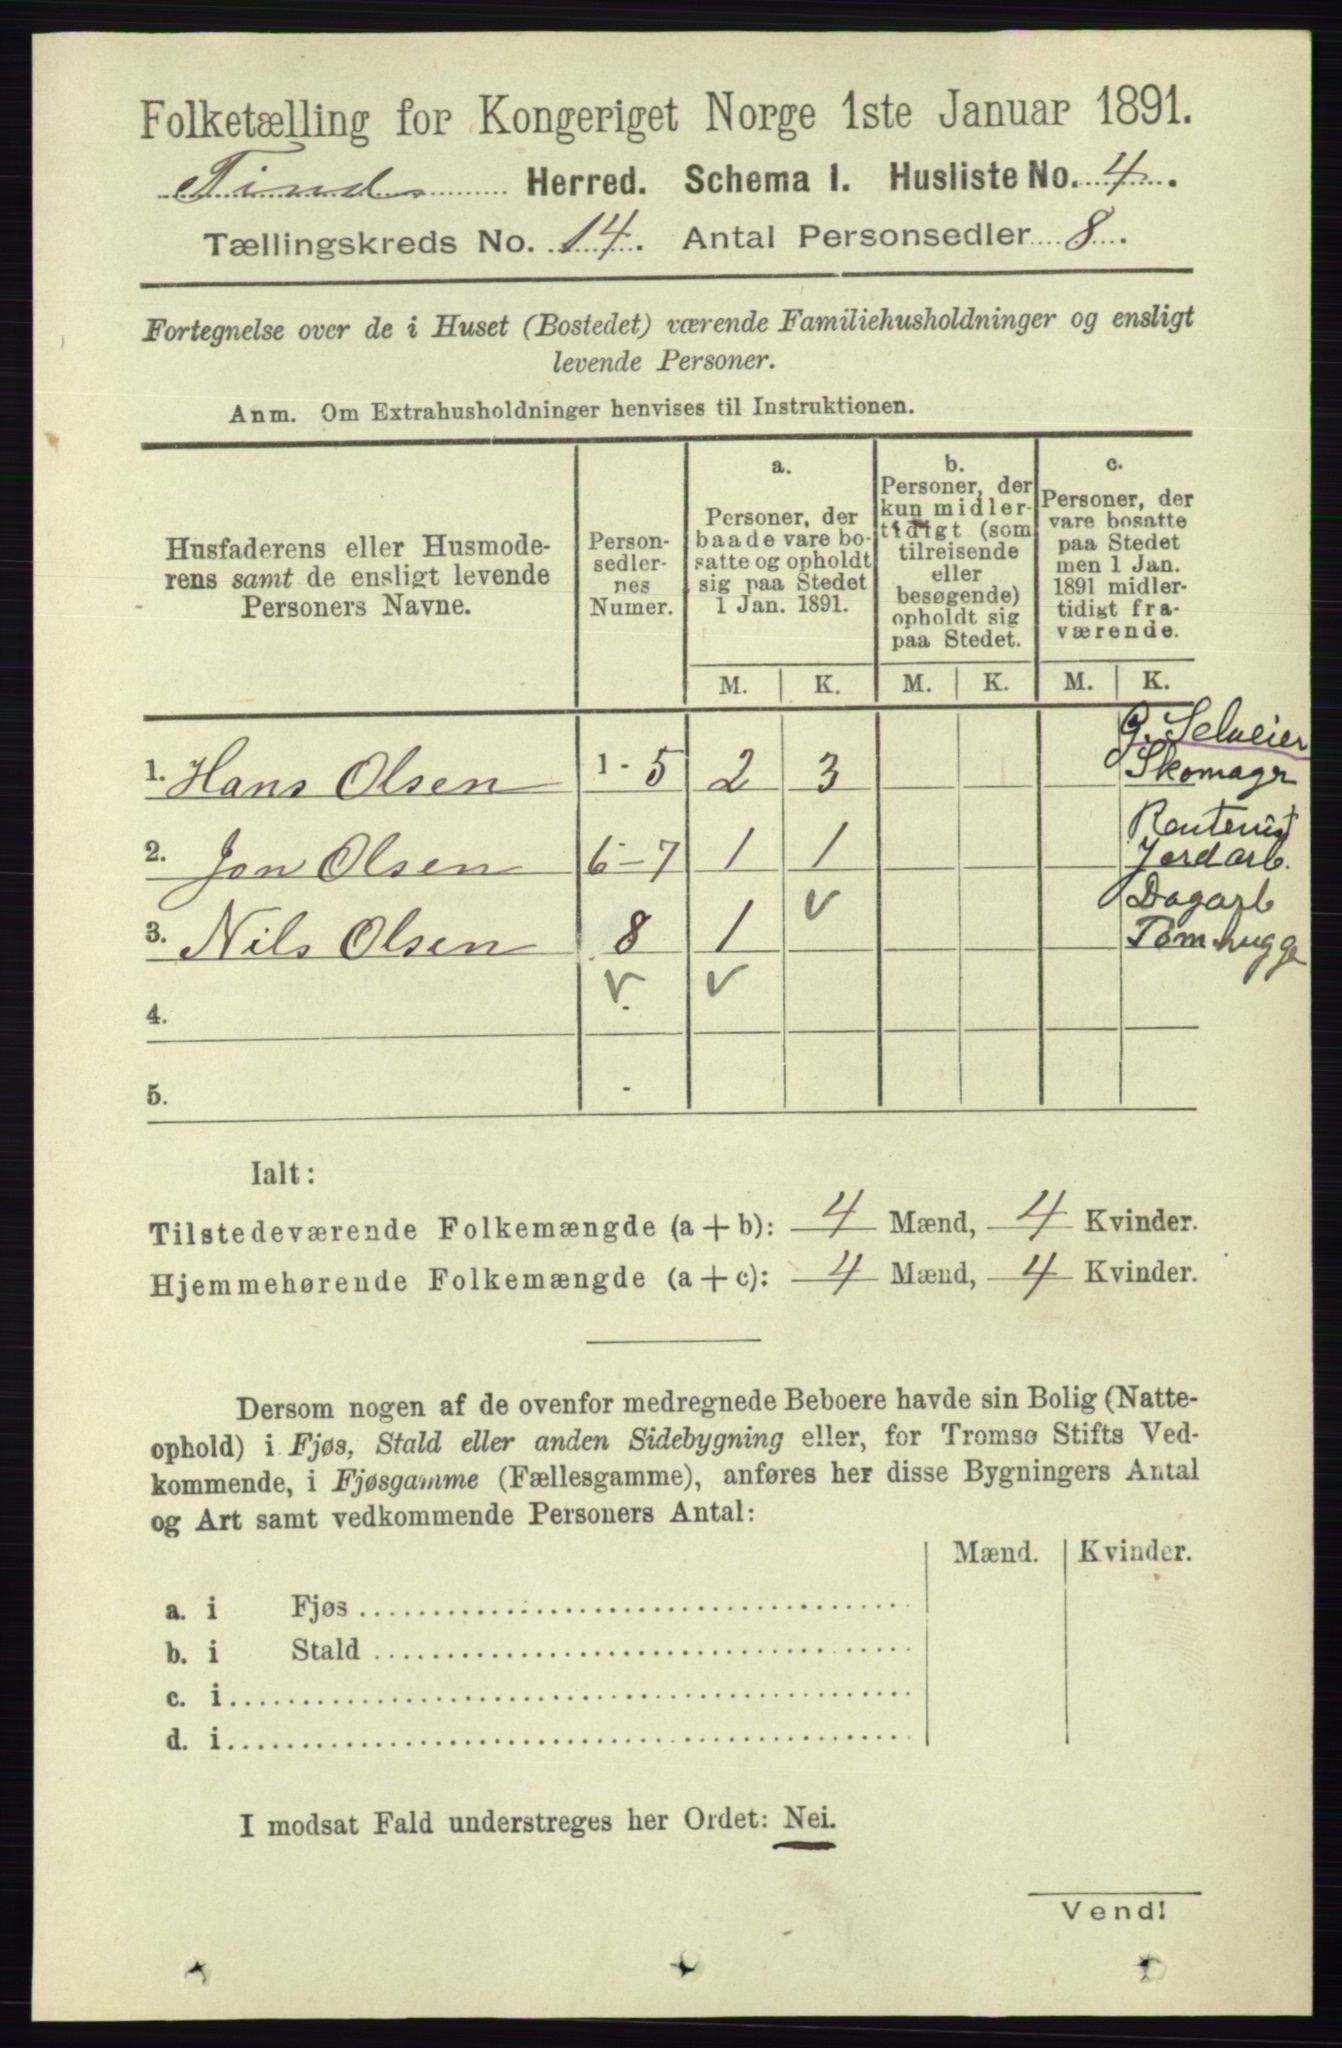 Folketælling for Kongeriget Norge 1ste Januar 1891.
Tinds Herred. Schema 1. Husliste No. 4.
Tællingskreds No. 14. Antal Personsedler 8.
Fortegnelse over de i Huset (Bostedet) værende Familiehusholdninger og ensligt
levende Personer.
Anm. Om Extrahusholdninger henvises til Instruktionen.
Husfaderens eller Husmode-
rens samt de ensligt levende
Personers Navne.
Person-
sedler-
nes
Numer.
a.
Personer, der
baade vare bo-
satte og opholdt
sig paa Stedet
1 Jan. 1891.
b.
Personer, der
kun midler-
tidigt (som
tilreisende
eller
besøgende)
opholdt sig
paa Stedet.
c.
Personer, der
vare bosatte
paa Stedet
men 1 Jan.
1891 midler-
tidigt fra-
værende.
M. K. M. K. M. K.
G. Selveier
1. Hans Olsen 1-5 2 3 Skomagr
Rentenist
2. Jon Olsen 6-7 1 1 Jordarb.
v Dagarb
3. Nils Olsen 8 1 Tømhugge
v v
4.
5. -
Ialt:
Tilstedeværende Folkemængde (a + b): 4 Mænd, 4 Kvinder.
Hjemmehørende Folkemængde (a + c): 4 Mænd, 4 Kvinder.
Dersom nogen af de ovenfor medregnede Beboere havde sin Bolig (Natte-
ophold) i Fjøs, Stald eller anden Sidebygning eller, for Tromsø Stifts Ved-
kommende, i Fjøsgamme (Fællesgamme), anføres her disse Bygningers Antal
og Art samt vedkommende Personers Antal:
Mænd. Kvinder.
a. i Fjøs
b. i Stald
c. i
d. i
I modsat Fald understreges her Ordet: Nei.
Vend!